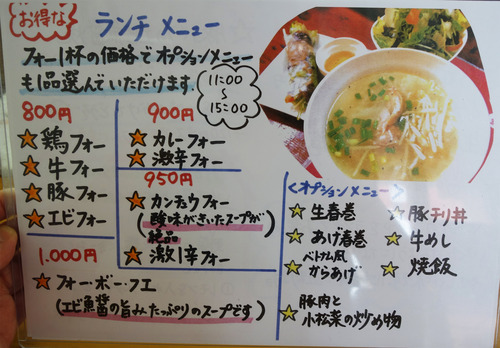 お得な
ランチ メニュー
フォー1杯の価格でオプションメニュー
も1品選んでいただけます。
11:00
～
15:00
800円
★鶏フォー
★牛フォー
★豚フォー
★エビフォー
900円
★カレーフォー
★激辛フォー
950円
★カンチュウフォー
(酸味がきいたスープが
絶品
★激辛フォー
1.000円
★フォー・ボー・フエ
(エビ魚醬の旨みたっぷりのスープです)
<オプションメニュー>
★生春巻
★あげ春巻
★ベトナム風
からあげ
豚肉と
★小松菜の炒め物
★豚チリ丼
★牛めし
★焼飯